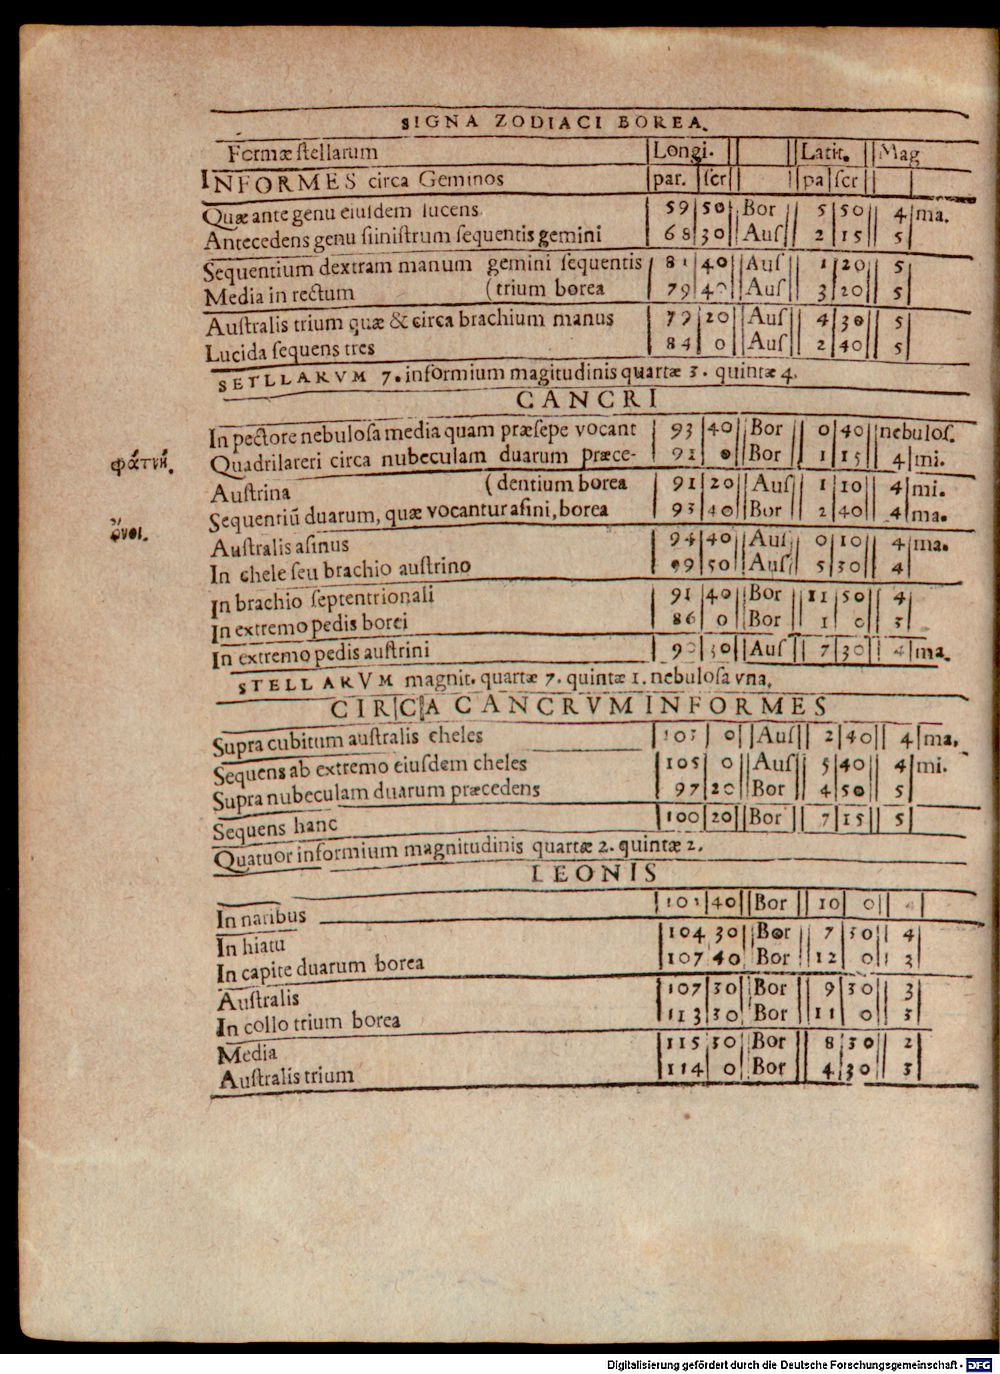 SIGNA ZODIACI BOREA.
Formæ stellarum Longi. Latit. Mag
INFORMES circa Geminos par. scr pa scr
Quæ ante genu eiusdem lucens 59 50 Bor 5 50 4 ma.
Antecedens genu siinistrum sequentis gemini 68 30 Aus 2 15 5
Sequentium dextram manum gemini sequentis 81 40 Aus 1 20 5
Media in rectum (trium borea 79 40 Aus 3 20 5
Australis trium quæ & circa brachium manus 79 20 Aus 4 30 5
Lucida sequens tres 84 0 Aus 2 40 5
SETLLARVM 7. informium magitudinis quartæ 3. quintæ 4.
CANCRI
In pectore nebulosa media quam præsepe vocant 93 40 Bor 0 40 nebulos.
φάτνη. Quadrilareri circa nubeculam duarum præce- 91 0 Bor 1 15 4 mi.
Austrina (dentium borea 91 20 Aus 1 10 4 mi.
ὄνοι. Sequentiũ duarum, quæ vocantur asini, borea 93 40 Bor 2 40 4 ma.
Australis asinus 94 40 Aus 0 10 4 ma.
In chele seu brachio austrino 99 50 Aus 5 30 4
In brachio septentrionali 91 40 Bor 11 50 4
In extremo pedis borei 86 0 Bor 1 0 5
In extremo pedis austrini 90 30 Aus 7 30 4 ma.
STELLARVM magnit. quartæ 7. quintæ 1. nebulosa vna.
CIRCA CANCRVM INFORMES
Supra cubitum australis cheles 103 0 Aus 2 40 4 ma.
Sequens ab extremo eiusdem cheles 105 0 Aus 5 40 4 mi.
Supra nubeculam duarum præcedens 97 20 Bor 4 50 5
Sequens hanc 100 20 Bor 7 15 5
Quatuor informium magnitudinis quartæ 2. quintæ 2.
LEONIS
In naribus 101 40 Bor 10 0 4
In hiatu 104 30 Bor 7 30 4
In capite duarum borea 107 40 Bor 12 0 3
Australis 107 30 Bor 9 30 3
In collo trium borea 113 30 Bor 11 0 3
Media 115 30 Bor 8 30 2
Australis trium 114 0 Bor 4 30 3
Digitalisierung gefördert durch die Deutsche Forschungsgemeinschaft - DFG